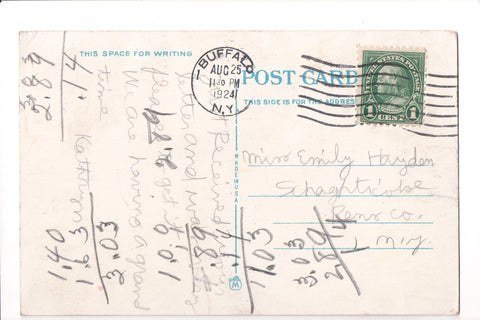 THIS SPACE FOR WRITING
BUFFALO
1
AUG 25
11 30 PM
1924
N.Y.
POST CARD
THIS SIDE IS FOR THE ADDRESS
UNITED STATES POSTAGE
1 CENT 1
MADE IN USA
M
Received your
letter and was
pleased to get it
We are having a grand
time
Miss Emily Hayden
Schaghticoke
Rens Co.
N.Y.
2.89
.14
1.40
1.63
3.03
2.19
.89
.14
1.03
3.03
2.89
14